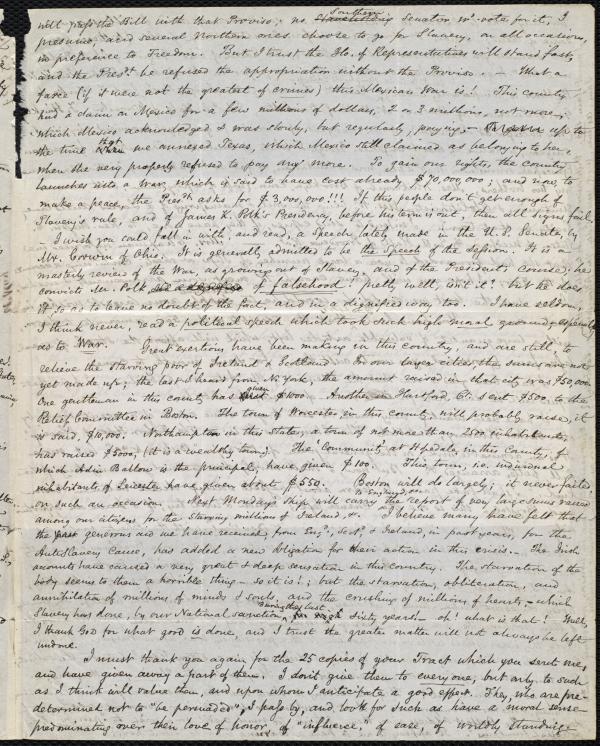 will pass the Bill with that Proviso; no Southern Senator wd vote for it, I
presume, and several Northern ones choose to go for Slavery, on all occasions,
in preference to Freedom. But I trust the Ho. of Representatives will stand fast,
and the Presdt be refused the appropriation without the Proviso. — What a
farce (if it were not the greatest of crimes) this Mexican War is! This country
had a claim on Mexico for a few millions of dollars, 2 or 3 millions, not more,
which Mexico acknowledged & was slowly, but regularly, paying, up to
the time that we annexed Texas, which Mexico still claimed as belonging to her,
when she very properly refused to pay any more. To gain our rights, the country
launches into a War, which is said to have cost already $70,000,000; and now, to
make a peace, the Presdt asks for $3,000,000!!! If this people don't get enough of
Slavery's rule, and of James K. Polk's Presidency, before his term is out, then all signs fail.
I wish you could fall in with, and read, a Speech lately made in the U.S. Senate, by
Mr. Corwin of Ohio. It is generally admitted to be the Speech of the Session. It is a
masterly review of the War, as growing out of Slavery, and of the President's course; he
convicts Mr. Polk of falsehood! pretty well, isn't it! but he does
it, so as to leave no doubt of the fact, and in a dignified way too. I have seldom,
I think never, read a political speech which took such high moral ground, especially
as to War. Great exertions have been making in this country, and are still, to
relieve the starving poor of Ireland & Scotland. In our larger cities, the sums are not
yet made up; the last I heard from N. York, the amount raised in that city was $50,000.
One gentleman in this county has given $1000. Another in Hartford, Ct. sent $500, to the
Relief Committee in Boston. The town of Worcester, in this county, will probably raise, it
is said, $10,000. Northampton in this State, a town of not more than 2500 inhabitants,
has raised $5000, (it is a wealthy town). The 'Community' at Hopedale, in this county, of
which Adin Ballou is the principal, have given $100. This town, i.e. individual
inhabitants of Leicester have given about $550. Boston will do largely; it never failed
on such an occasion. Next Monday's Ship will carry to England, the report of very large sums raised
among our citizens for the Starving millions of Ireland, &c. I believe many have felt that
the generous aid we have received from Engd, Scotd & Ireland, in past years, for the
AntiSlavery Cause, has added a new obligation for their action in this crisis. The Irish
accounts have caused a very great & deep sensation in this country. The starvation of the
body seems to them a horrible thing — so it is!; but the starvation, obliteration, and
annihilation of millions of minds & souls, and the crushing of millions of hearts, — which
Slavery has done, by our National sanction, during the last sixty years! — oh! what is that! Well,
I thank God for what good is done, and I trust the greater matter will not always be left
undone.
I must thank you again for the 25 copies of your Tract which you sent me,
and have given away a part of them. I don't give them to everyone, but only to such
as I think will value them, and upon whom I anticipate a good effect. They, who are pre-
determined not to "be persuaded", I pass by, and look for such as have a moral sense
predominating over their love of honor, of "influence," of ease, of worldly standing